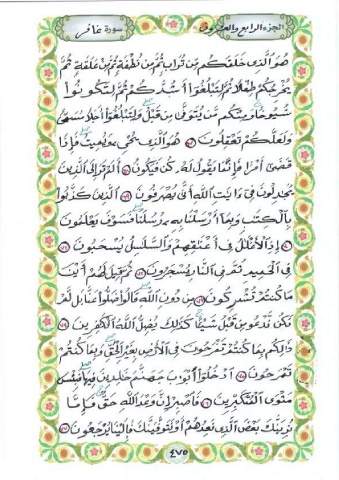 الجزء الرابع والعشرون
سورة غافر
هُوَ الَّذِي خَلَقَكُم مِّن تُرَابٍ ثُمَّ مِن نُّطْفَةٍ ثُمَّ مِنْ عَلَقَةٍ ثُمَّ
يُخْرِجُكُمْ طِفْلًا ثُمَّ لِتَبْلُغُوا أَشُدَّكُمْ ثُمَّ لِتَكُونُوا
شُيُوخًا وَمِنكُم مَّن يُتَوَفَّى مِن قَبْلُ وَلِتَبْلُغُوا أَجَلًا مُّسَمًّى
وَلَعَلَّكُمْ تَعْقِلُونَ ٦٧ هُوَ الَّذِي يُحْيِي وَيُمِيتُ فَإِذَا
قَضَى أَمْرًا فَإِنَّمَا يَقُولُ لَهُ كُن فَيَكُونُ ٦٨ أَلَمْ تَرَ إِلَى الَّذِينَ
يُجَادِلُونَ فِي ءَايَاتِ اللَّهِ أَنَّى يُصْرَفُونَ ٦٩ الَّذِينَ كَذَّبُوا
بِالْكِتَابِ وَبِمَا أَرْسَلْنَا بِهِ رُسُلَنَا فَسَوْفَ يَعْلَمُونَ
٧٠ إِذِ الْأَغْلَالُ فِي أَعْنَاقِهِمْ وَالسَّلَاسِلُ يُسْحَبُونَ ٧١
فِي الْحَمِيمِ ثُمَّ فِي النَّارِ يُسْجَرُونَ ٧٢ ثُمَّ قِيلَ لَهُمْ أَيْنَ
مَا كُنتُمْ تُشْرِكُونَ ٧٣ مِن دُونِ اللَّهِ قَالُوا ضَلُّوا عَنَّا بَل لَّمْ
نَكُن نَّدْعُوا مِن قَبْلُ شَيْئًا كَذَلِكَ يُضِلُّ اللَّهُ الْكَافِرِينَ ٧٤
ذَلِكُم بِمَا كُنتُمْ تَفْرَحُونَ فِي الْأَرْضِ بِغَيْرِ الْحَقِّ وَبِمَا كُنتُمْ
تَمْرَحُونَ ٧٥ ادْخُلُوا أَبْوَابَ جَهَنَّمَ خَالِدِينَ فِيهَا فَبِئْسَ
مَثْوَى الْمُتَكَبِّرِينَ ٧٦ فَاصْبِرْ إِنَّ وَعْدَ اللَّهِ حَقٌّ فَإِمَّا
نُرِيَنَّكَ بَعْضَ الَّذِي نَعِدُهُمْ أَوْ نَتَوَفَّيَنَّكَ فَإِلَيْنَا يُرْجَعُونَ ٧٧
٤٧٥